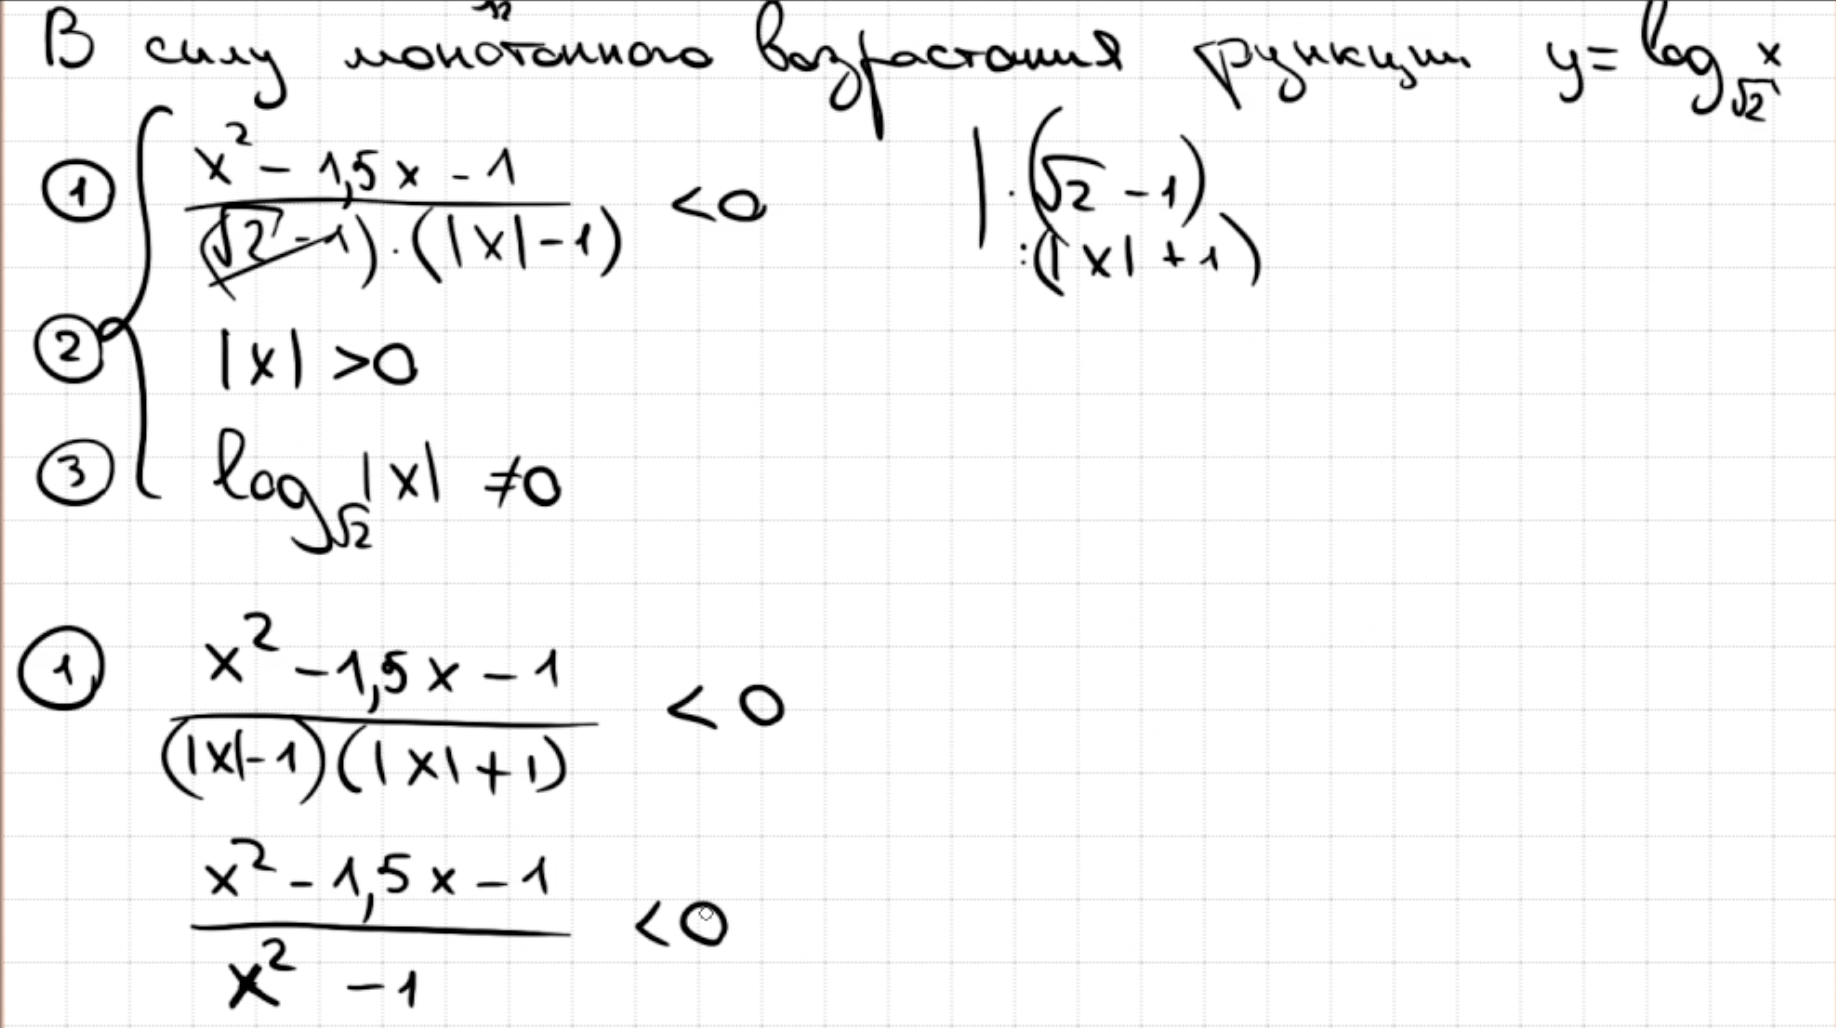 В силу монотонного возрастания функции y = log_√2 x
① { (x² - 1,5x - 1) / ((√2 - 1) · (|x| - 1)) < 0 | · (√2 - 1)
: (|x| + 1)
② |x| > 0
③ log_√2 |x| ≠ 0
① (x² - 1,5x - 1) / ((|x| - 1)(|x| + 1)) < 0
(x² - 1,5x - 1) / (x² - 1) < 0